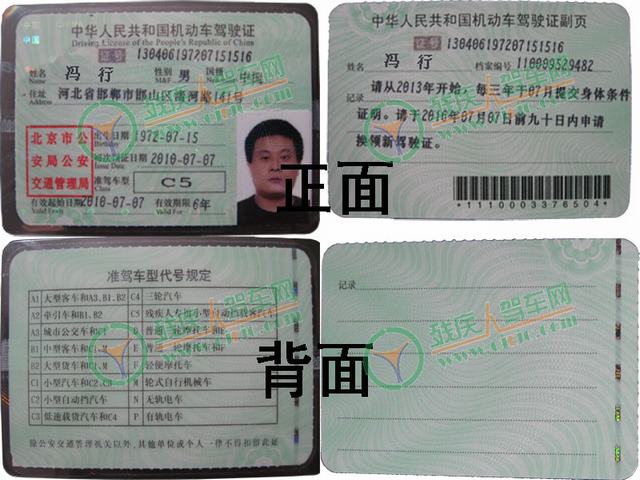 中华人民共和国机动车驾驶证
Driving License of the People's Republic of China
中国
证号 130406197207151516
姓名 冯行 性别 男 国籍 中国
Name
住址 河北省邯郸市邯山区滏河路141号
北京市公
安局公安
交通管理局
出生日期 1972-07-15
Birthday
初次领证日期 2010-07-07
Issue Date
准驾车型 C5
Class
有效起始日期 2010-07-07 有效期限 6年
Valid From Valid For
中华人民共和国机动车驾驶证副页
证号 130406197207151516
姓名 冯行 档案编号 110009529482
请从2013年开始，每三年于07月提交身体条件
证明。请于2016年07月07日前九十日内申请
换领新驾驶证。
*1110003376504*
正面
准驾车型代号规定
A1 大型客车和A3、B1、B2 C4 三轮汽车
A2 牵引车和B1、B2 C5 残疾人专用小型自动挡载客汽车
A3 城市公交车和C1 D 普通三轮摩托车和E
B1 中型客车和C1、M E 普通二轮摩托车和F
B2 大型货车和C1、M F 轻便摩托车
C1 小型汽车和C2、C3 M 轮式自行机械车
C2 小型自动挡汽车 N 无轨电车
C3 低速载货汽车和C4 P 有轨电车
除公安交通管理机关以外，其他单位或个人一律不得扣留此证
背面
记录
记录
残疾人驾车网
www.cjrjc.com